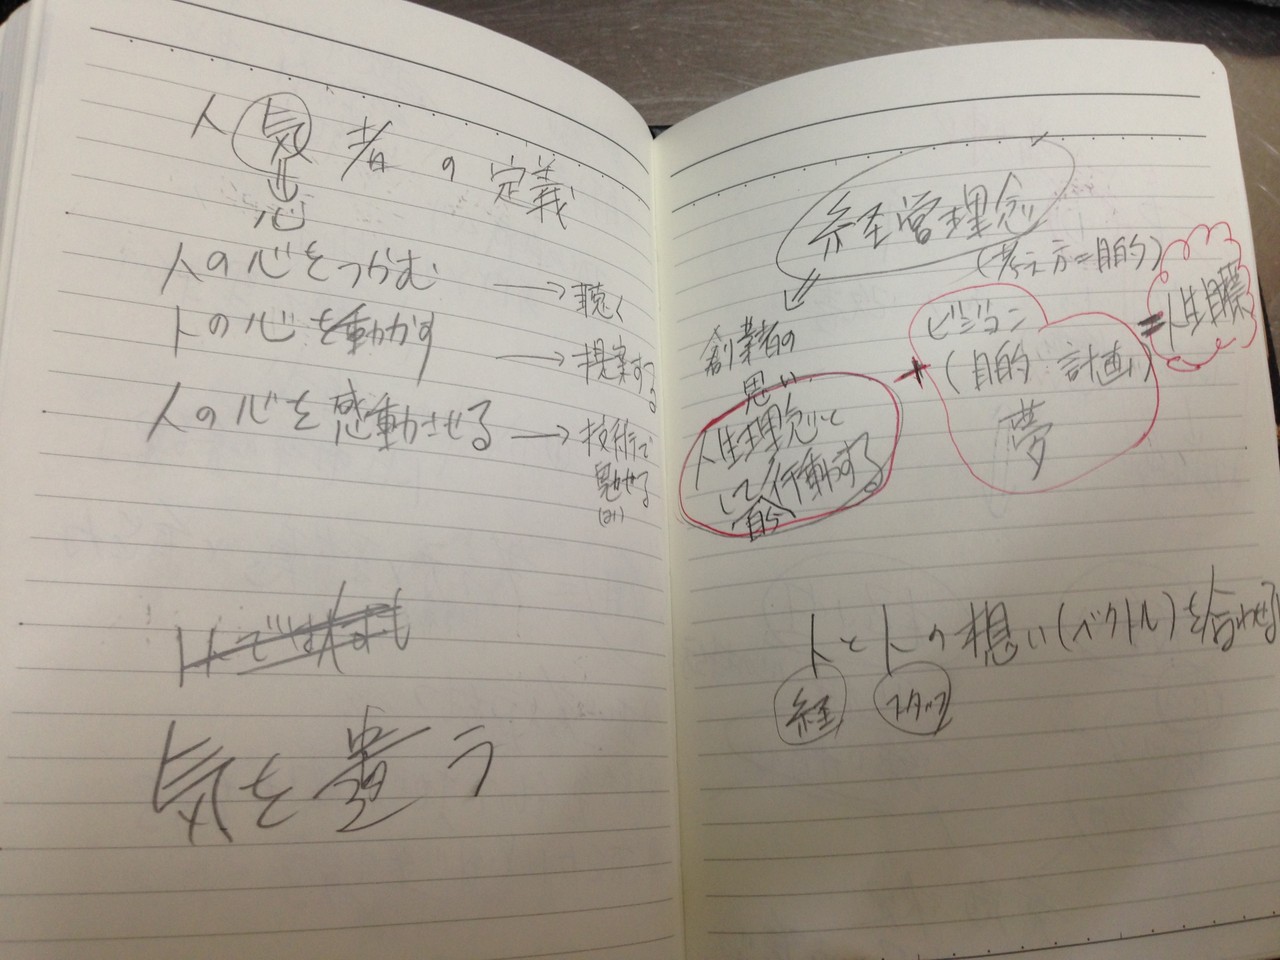 人気者の定義
⇓
心
人の心をつかむ → 聴く
人の心を動かす → 提案する
人の心を感動させる → 技術で
魅せる
(み)
気を遣う
経営理念
(考え方=目的)
創業者の
思い
人生理念と
して行動する
自分
+
ビジョン
(目的 計画)
夢
=
人と人の想い(ベクトル)を合わせる
経 スタッフ